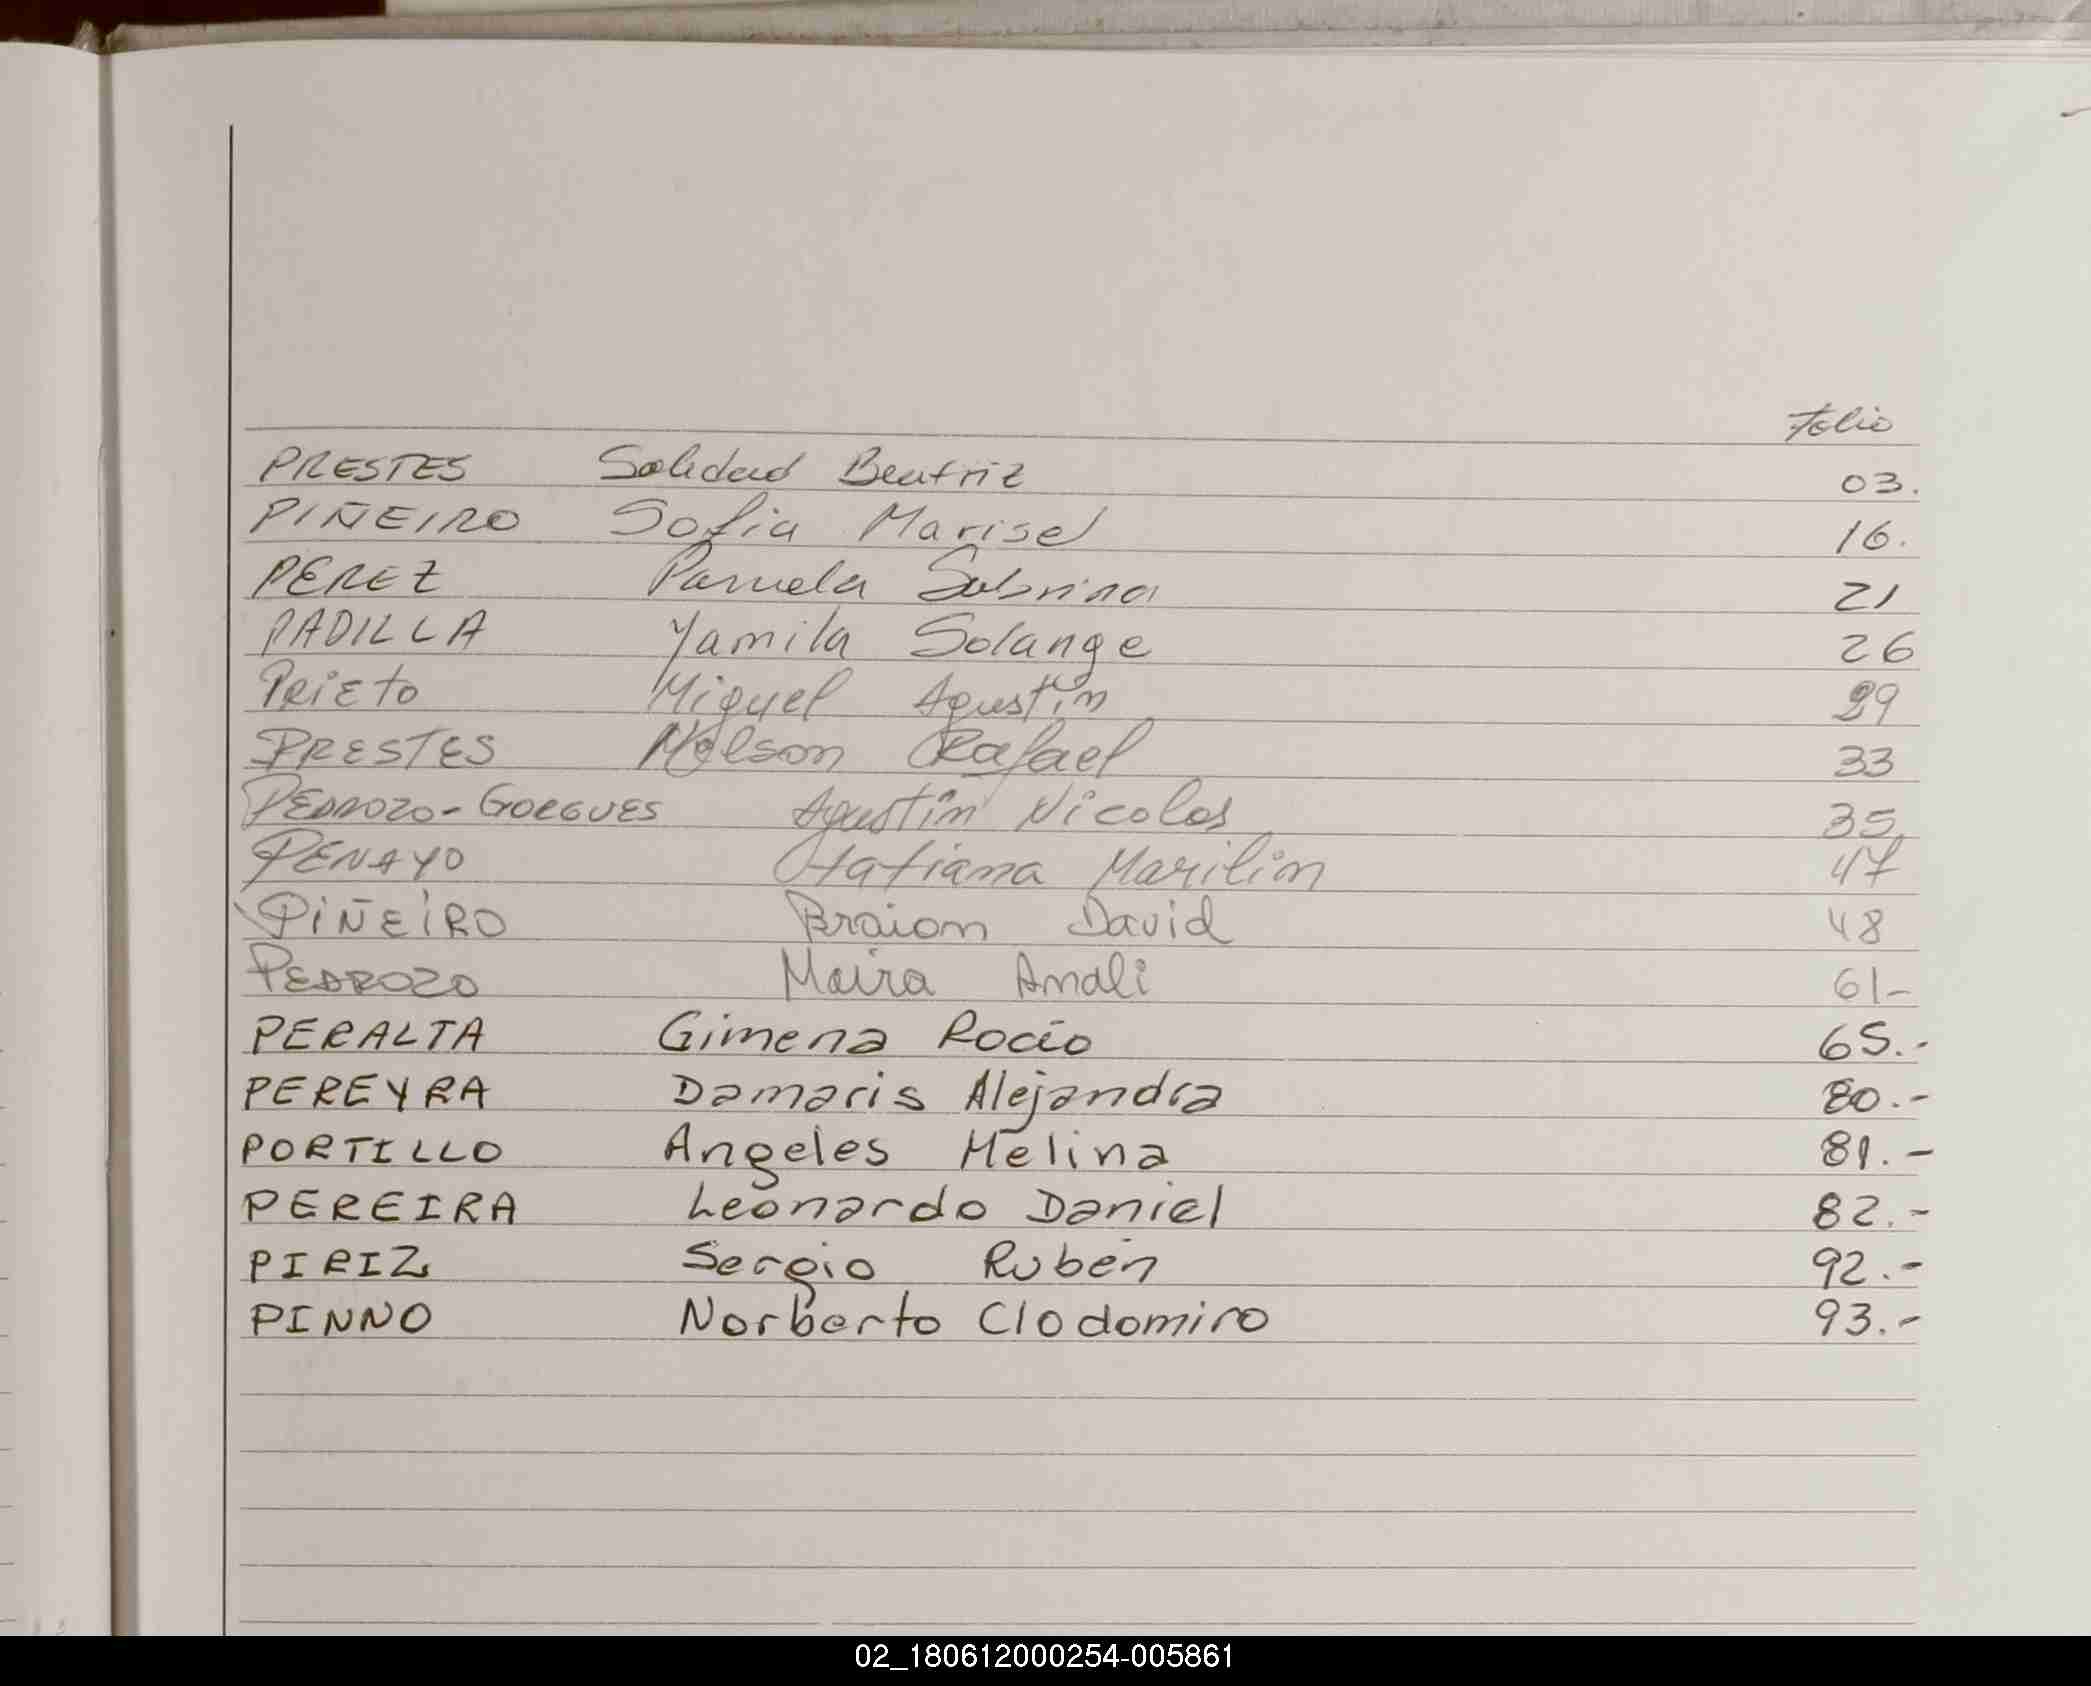 Folio
PRESTES Soledad Beatriz 03.
PIÑEIRO Sofia Marisel 16.
PEREZ Pamela Sabrina 21
PADILLA Yamila Solange 26
PRIETO Miguel Agustín 29
PRESTES Nelson Rafael 33
PEDROZO-GORGUES Agustín Nicolas 35.
PENAYO Tatiana Marilin 47
PIÑEIRO Braion David 48
PEDROZO Maira Anali 61-
PERALTA Gimena Rocío 65.-
PEREYRA Damaris Alejandra 80.-
PORTILLO Angeles Melina 81.-
PEREIRA Leonardo Daniel 82.-
PIRIZ Sergio Rubén 92.-
PINNO Norberto Clodomiro 93.-
02_180612000254-005861